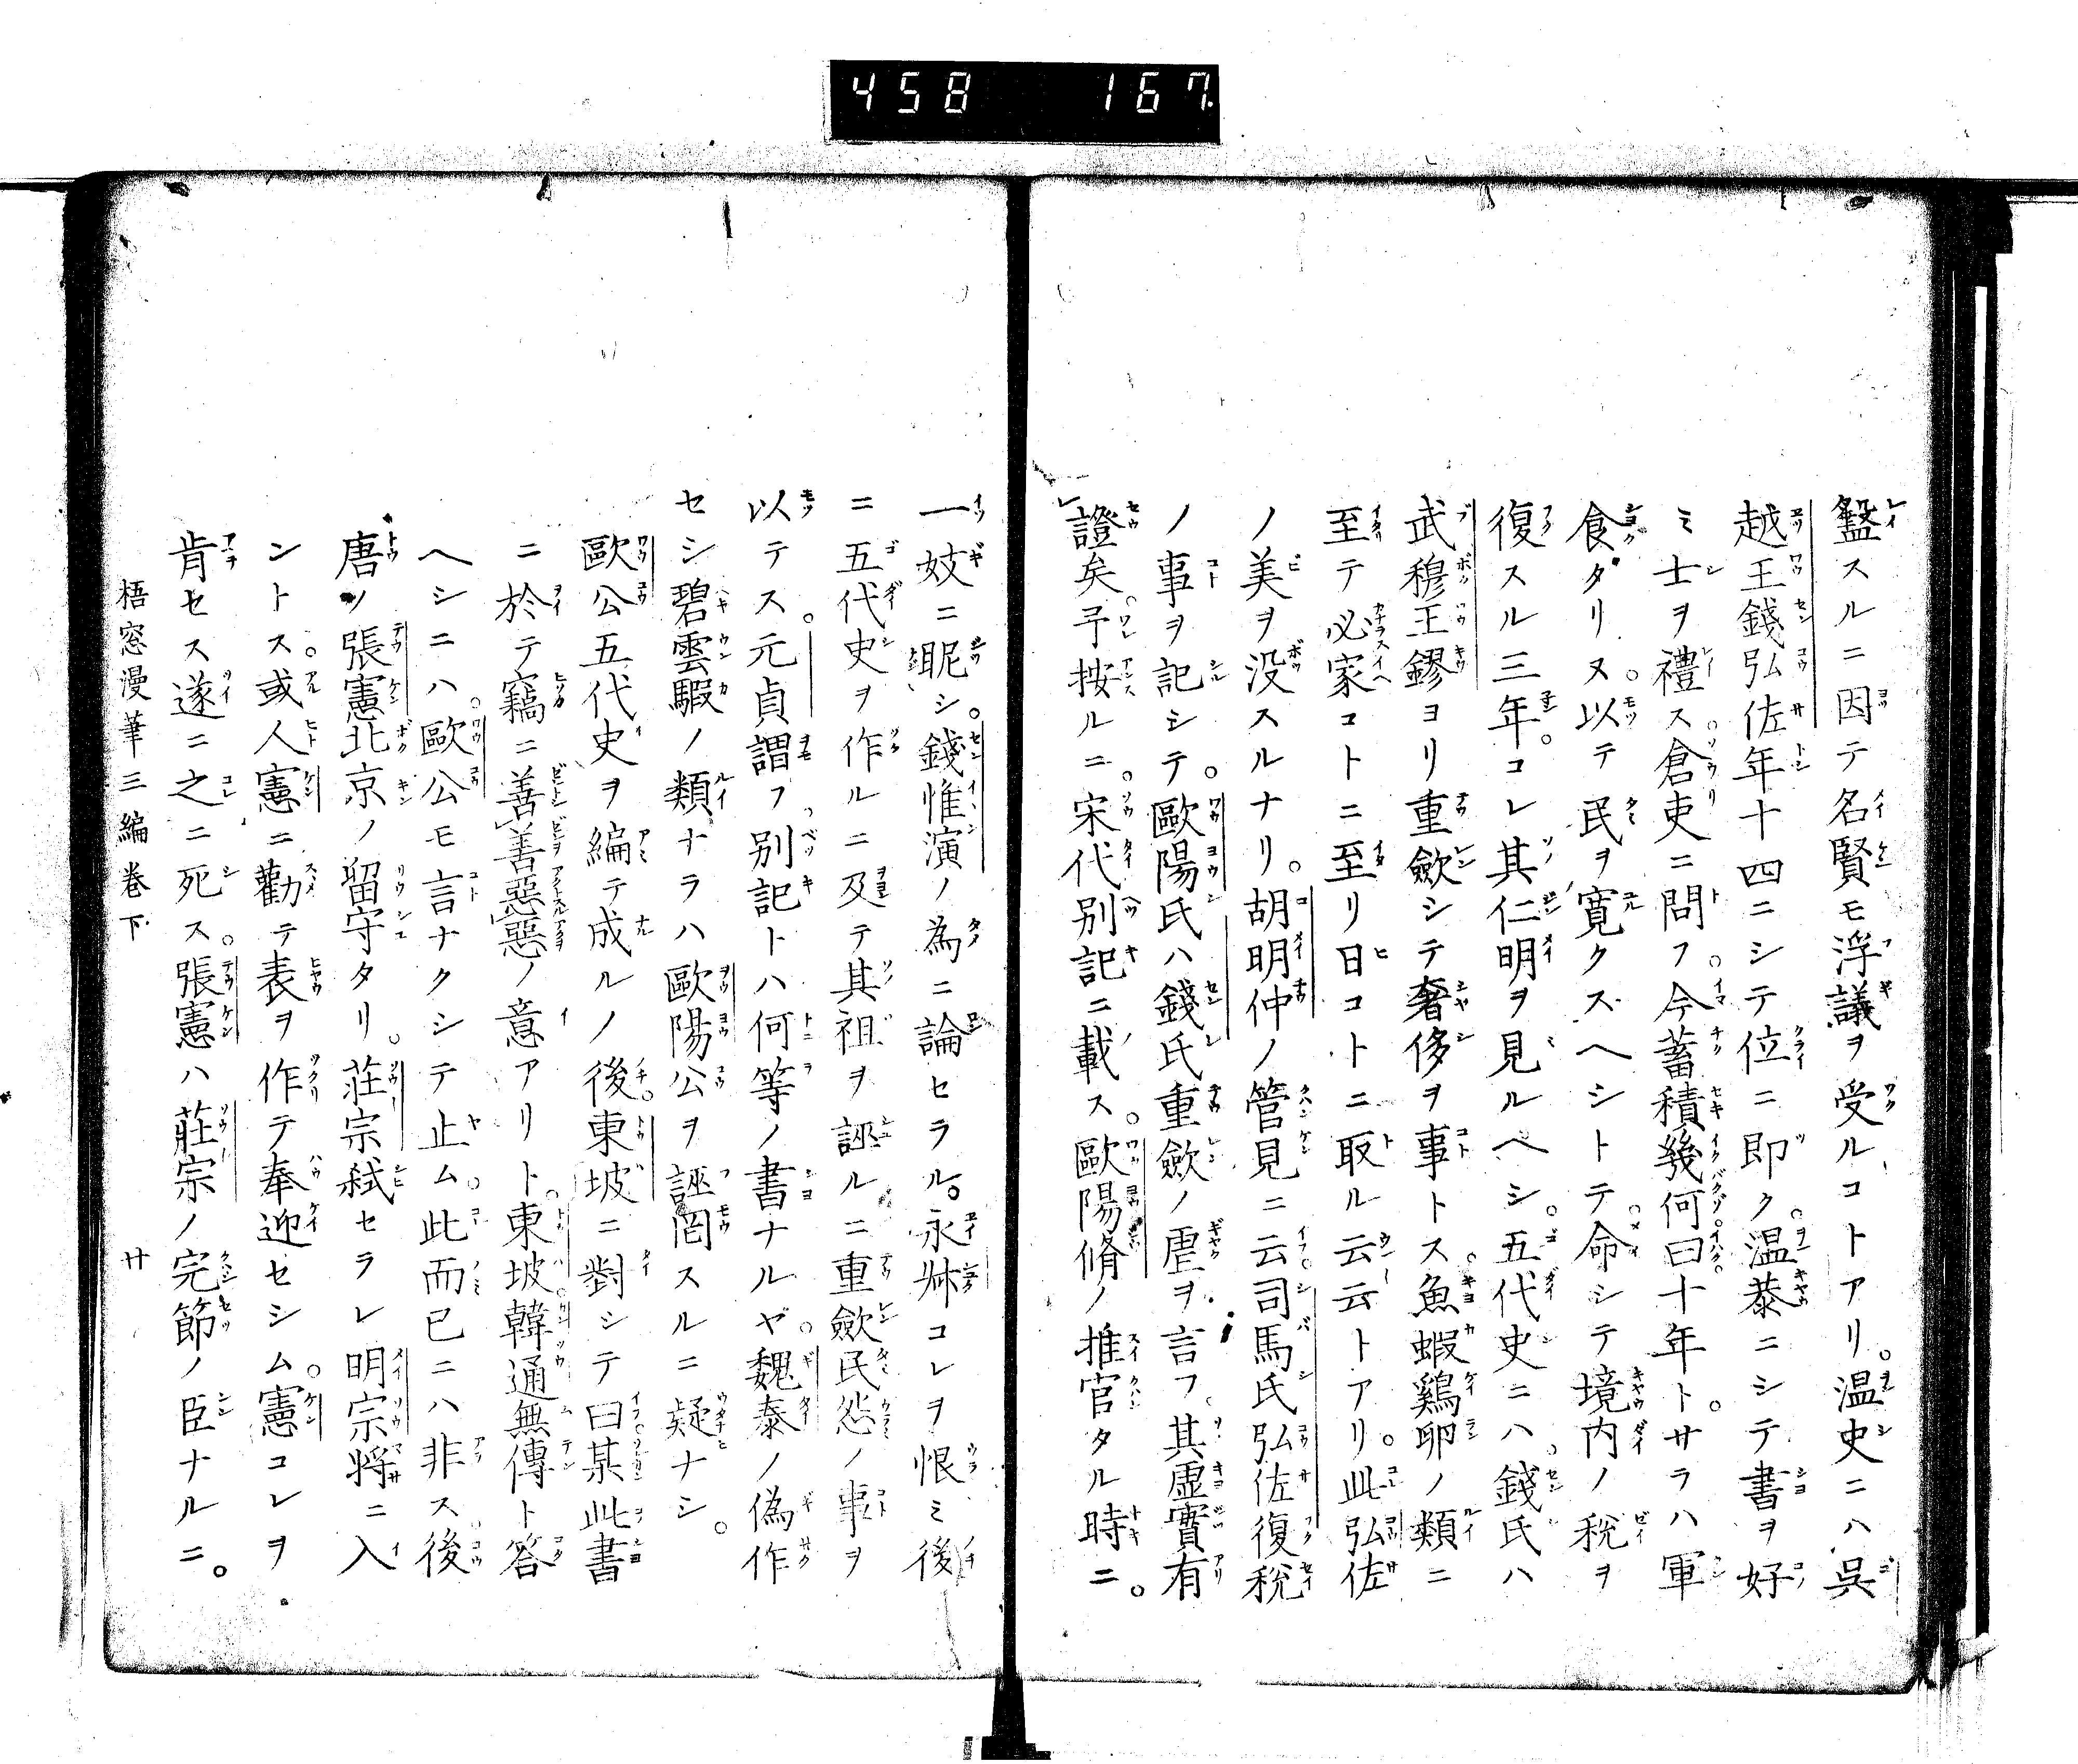 458 167.
盭スルニ因テ名賢モ浮議ヲ受ルコトアリ。温史ニハ呉
越王錢弘佐年十四ニシテ位ニ即ク。温恭ニシテ書ヲ好
ミ士ヲ禮ス。倉吏ニ問フ。今蓄積幾何。曰十年ト。サラハ軍
食タリヌ。以テ民ヲ寛クスヘシトテ。命シテ境内ノ税ヲ
復スル三年。コレ其仁明ヲ見ルヘシ。五代史ニハ。錢氏ハ
武穆王鏐ヨリ重斂シテ奢侈ヲ事トス。魚蝦鷄卵ノ類ニ
至テ必家コトニ至リ日コトニ取ル云云トアリ。此弘佐
ノ美ヲ没スルナリ。胡明仲ノ管見ニ云。司馬氏弘佐復税
ノ事ヲ記シテ。歐陽氏ハ錢氏重斂ノ虐ヲ言フ。其虚實有
證矣。予按ルニ。宋代別記ニ載ス。歐陽脩ノ推官タル時ニ。
一妓ニ眤シ。錢惟演ノ為ニ論セラル。永叔コレヲ恨ミ後
ニ五代史ヲ作ルニ及テ其祖ヲ誣ルニ重斂民怨ノ事ヲ
以テス。元貞謂フ。別記トハ何等ノ書ナルヤ。魏泰ノ偽作
セシ碧雲騢ノ類ナラハ歐陽公ヲ誣罔スルニ疑ナシ。
歐公五代史ヲ編テ成ルノ後。東坡ニ對シテ曰某此書
ニ於テ竊ニ善善惡惡ノ意アリト。東坡ハ。韓通無傳ト答
ヘシニハ。歐公モ言ナクシテ止ム。此而已ニハ非ス。後
唐ノ張憲北京ノ留守タリ。荘宗弑セラレ明宗將ニ入
ントス。或人憲ニ勸テ表ヲ作テ奉迎セシム。憲コレヲ
肯セス遂ニ之ニ死ス。張憲ハ荘宗ノ完節ノ臣ナルニ。
梧窓漫筆三編巻下 廿